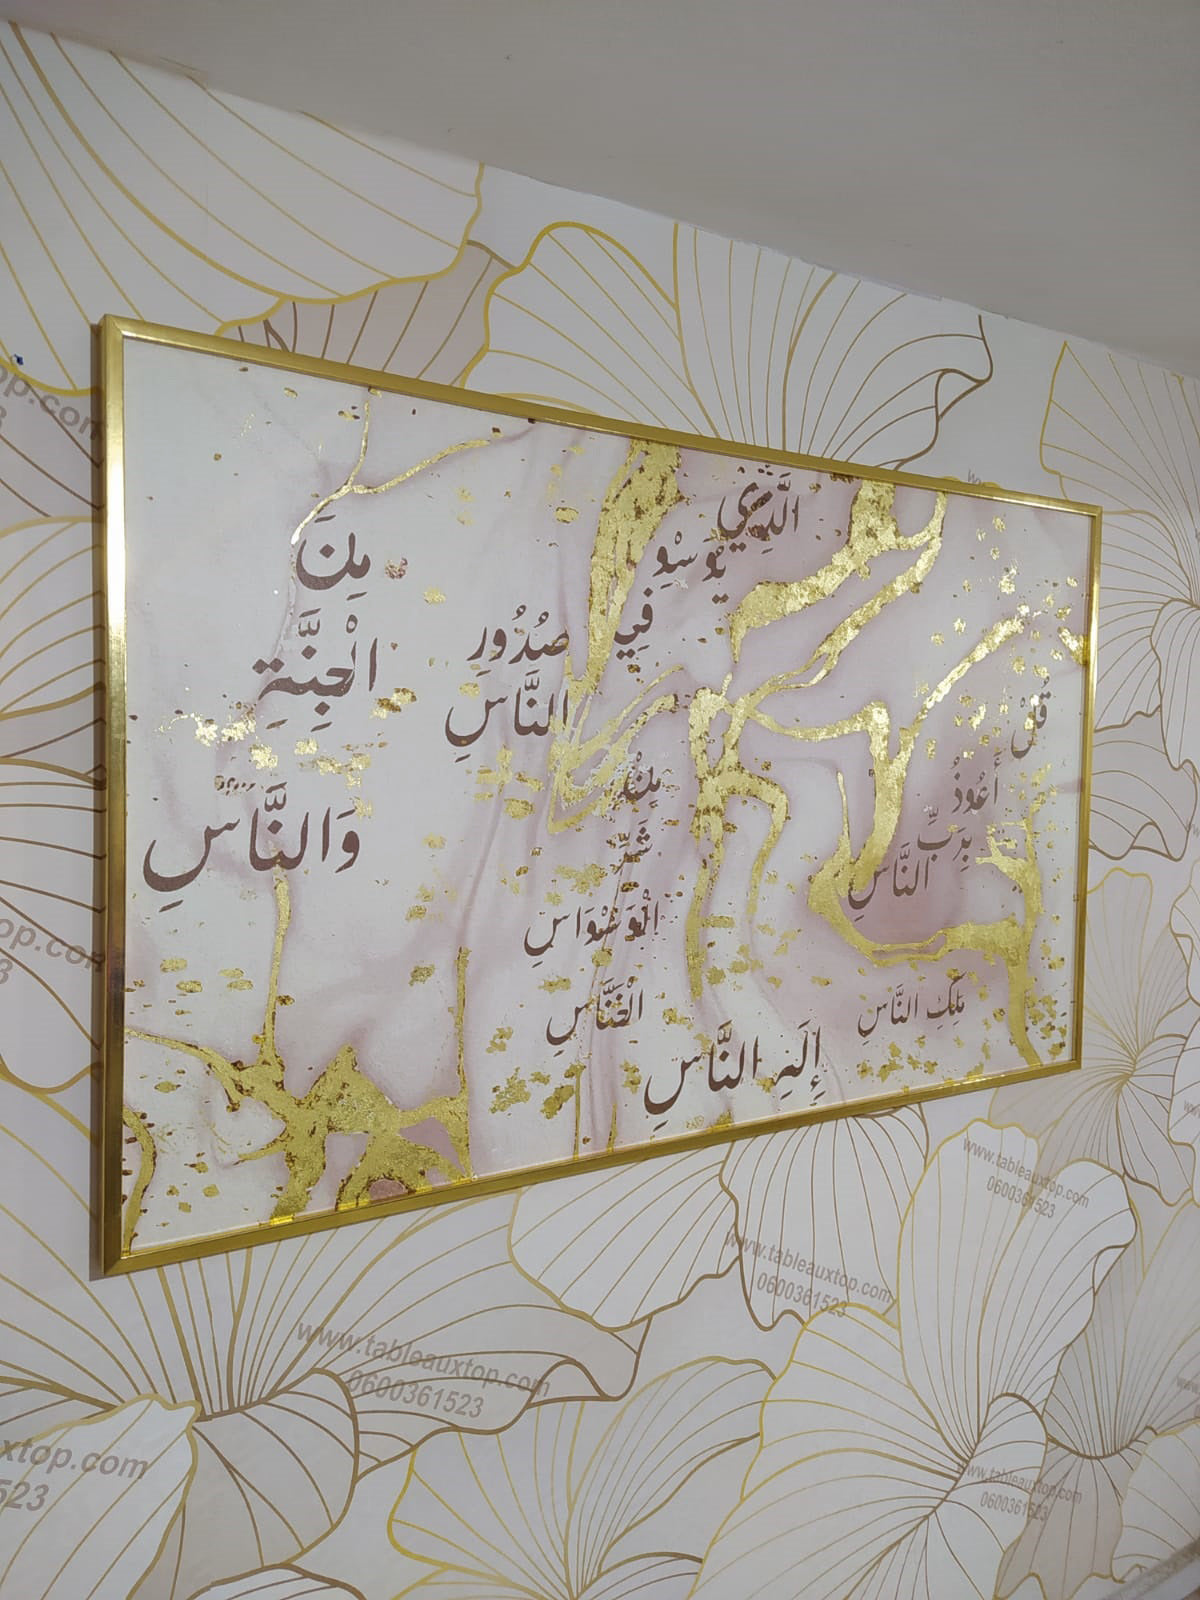 قُلْ
أَعُوذُ
بِرَبِّ
النَّاسِ
مَلِكِ النَّاسِ
إِلَهِ النَّاسِ
مِنْ
شَرِّ
الْوَسْوَاسِ
الْخَنَّاسِ
الَّذِي
يُوَسْوِ
فِي
صُدُورِ
النَّاسِ
مِنَ
الْجِنَّةِ
وَالنَّاسِ
www.tableauxtop.com
0600361523
www.tableauxtop.com
0600361523
www.tableauxtop.com
0600361523
www.tableauxtop.com
0600361523
xtop.com
523